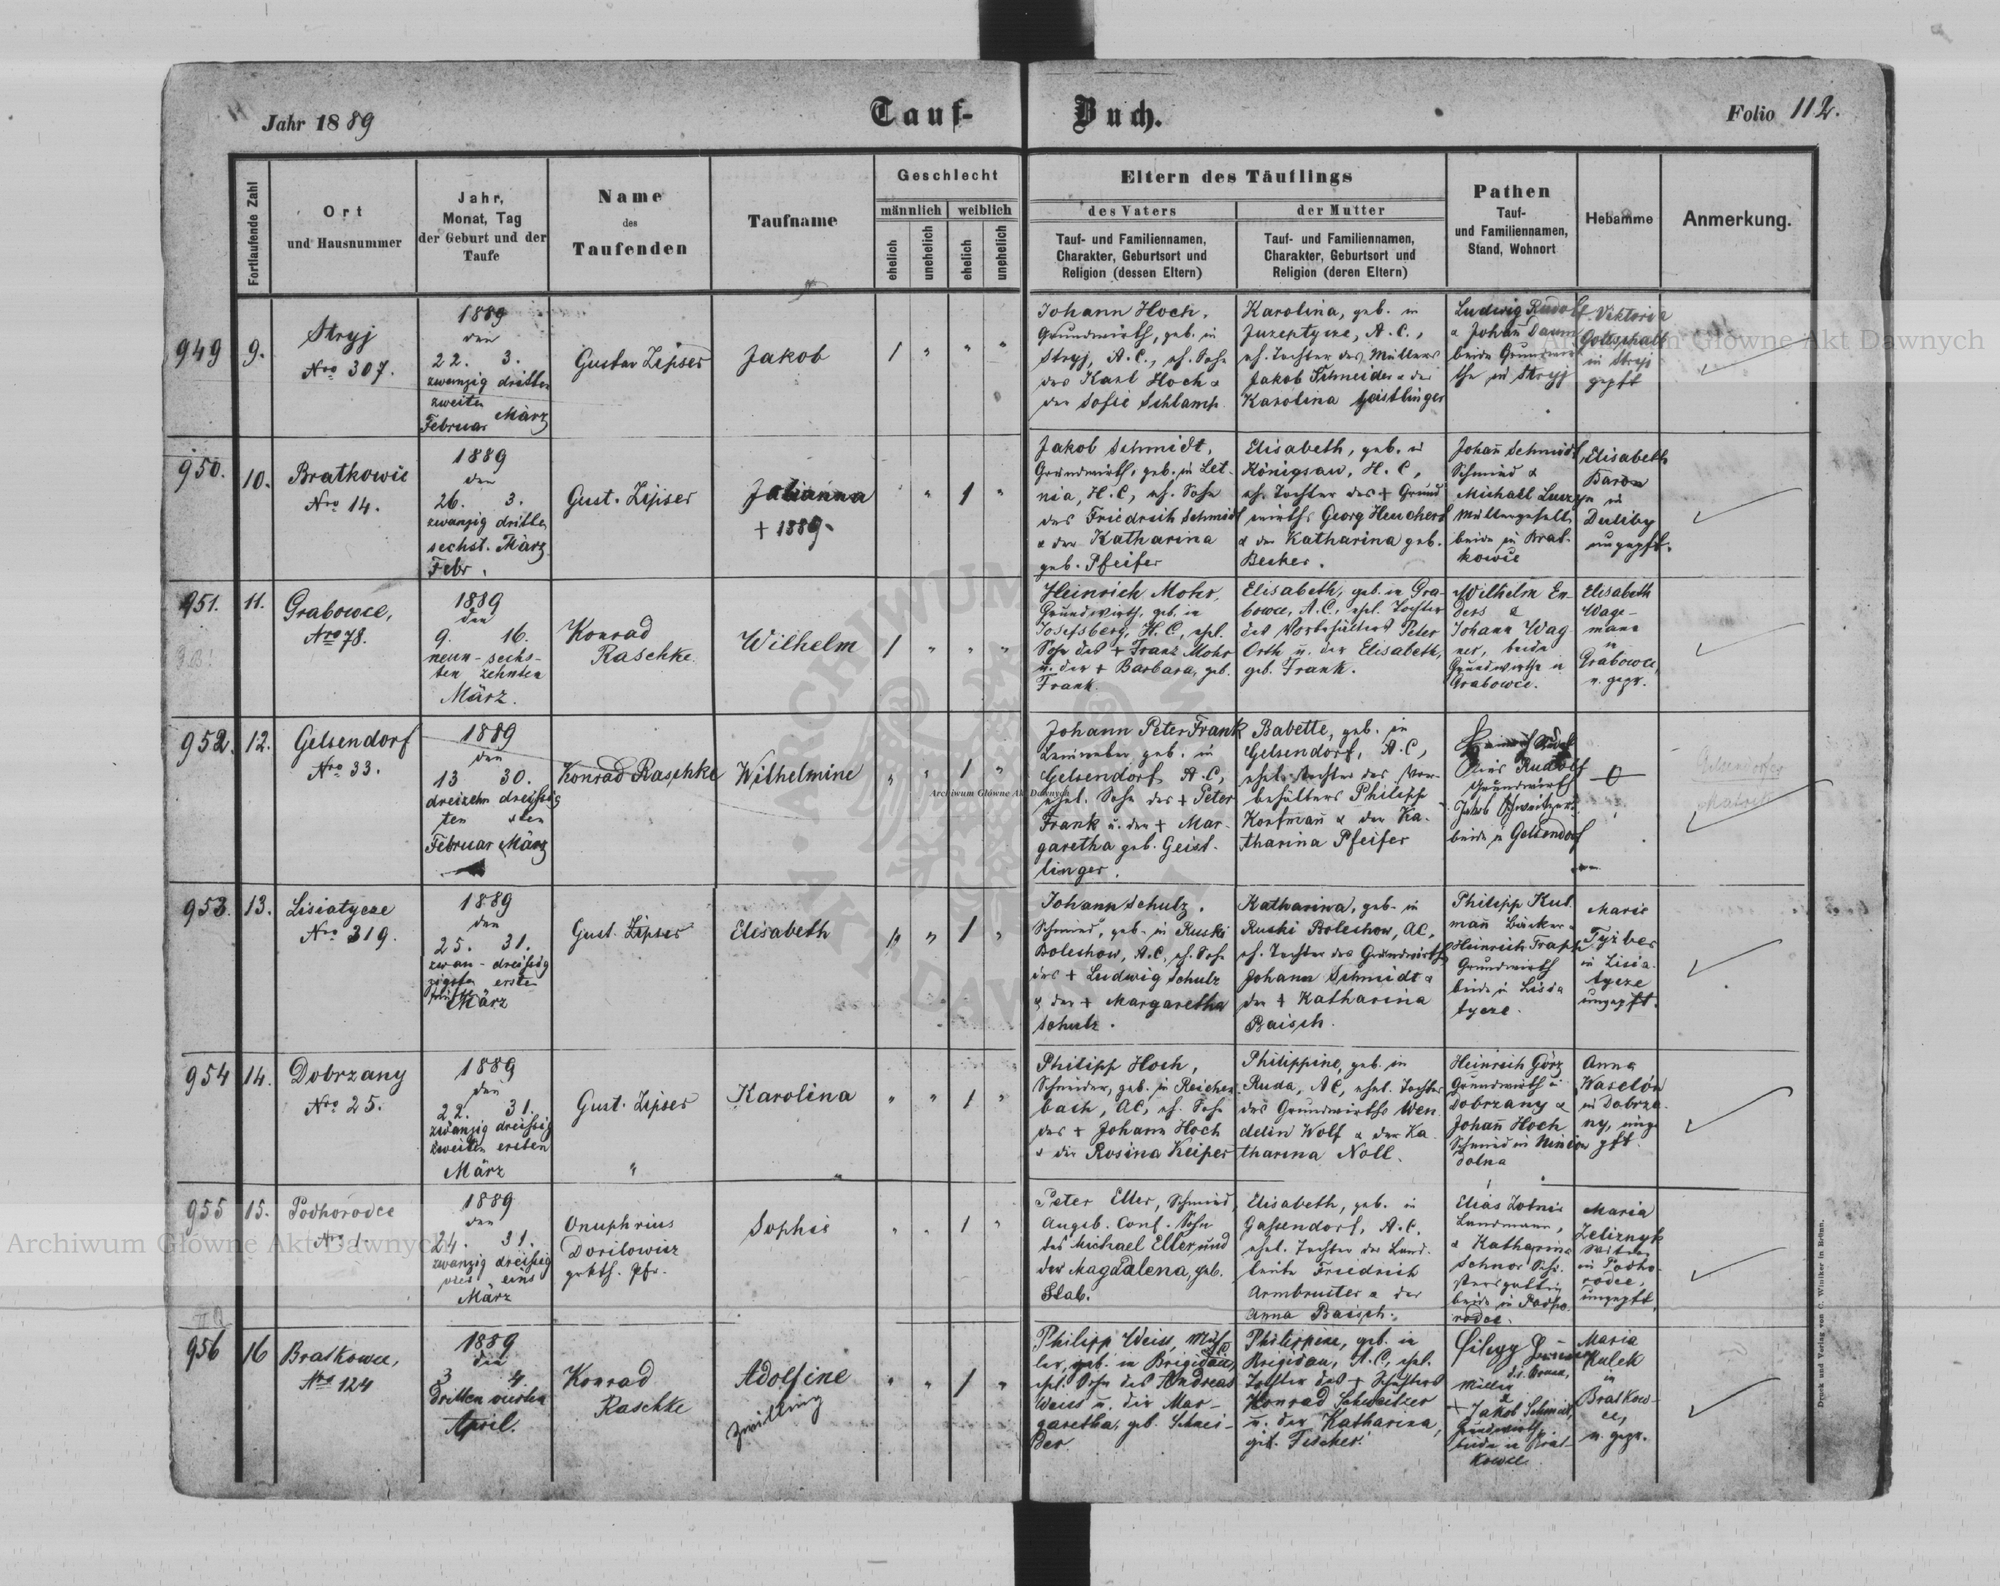 Jahr 1889
Tauf-
Buch.
Folio 112.
Fortlaufende Zahl
Ort
und Hausnummer
Jahr,
Monat, Tag
der Geburt und der
Taufe
Name
des
Taufenden
Taufname
Geschlecht
männlich
weiblich
ehelich
unehelich
ehelich
unehelich
Eltern des Täuflings
des Vaters
Tauf- und Familiennamen,
Charakter, Geburtsort und
Religion (dessen Eltern)
der Mutter
Tauf- und Familiennamen,
Charakter, Geburtsort und
Religion (deren Eltern)
Pathen
Tauf-
und Familiennamen,
Stand, Wohnort
Hebamme
Anmerkung.
949
9.
Stryj
Nro 307.
1889
den
22. 3.
zwanzig dritten
zweiten
Februar März
Gustav Zipser
Jakob
1 " " "
Johann Hoch,
Grundwirth, geb. in
Stryj, A.C., eh. Sohn
des Karl Hoch &
der Sofie Schlamp
Karolina, geb. in
Jurezptyeze, A.C.,
eh. Tochter des Müllers
Jakob Schneider & der
Karolina Geistlinger
Ludwig Rudolf
& Johañ Daum
beide Grundwir
the in Stryj
Viktoria
Gottschalk
in Stryj
gepft
950.
10.
Bratkowie
Nro 14.
1889
den
26. 3.
zwanzig dritten
sechst. März
Febr.
Gust. Zipser
Julianna
+ 1889.
" 1 "
Jakob Schmidt,
Grundwirth, geb. in Let
nia, H.C, eh. Sohn
des Friedrich Schmidt
& der Katharina
geb. Pfeifer
Elisabeth, geb. in
Königsau, H.C,
eh. Tochter des + Grund
wirths Georg Heuchert
& der Katharina geb.
Becker.
Johañ Schmidt,
Schmied &
Michael
Müllergeselle
beide in Brat-
kowie
Elisabeth
Baron
in
Duliby
ungepft.
951.
11.
Grabowce,
Nro 78.
1889
den
9. 16.
neun- sechs-
ten zehnten
März.
Konrad
Raschke
Wilhelm
1 " " "
Heinrich Mohr,
Grundwirth, geb. in
Josefsberg, H.C, ehl.
Sohn des + Franz Mohr
u. der + Barbara, geb.
Frank.
Elisabeth, geb. in Gra-
bowce, A.C, ehel. Tochter
des Vorbehälters Peter
Orth u. der Elisabeth,
geb. Frank.
Wilhelm En-
ders &
Johann Wag
ner, beide
Grundwirthe in
Grabowce.
Elisabeth
Wage-
mann
in
Grabowce,
u. gepr.
952.
12.
Gelsendorf
Nro 33.
1889
den
13 30.
dreizehn dreißig
ten sten
Februar März
Konrad Raschke
Wilhelmine
" " 1 "
Johann Peter Frank
Leinweber, geb. in
Gelsendorf, A.C,
ehel. Sohn des + Peter
Frank u. der + Mar-
garetha geb. Geist-
linger.
Babette, geb. in
Gelsendorf, A.C,
ehel. Tochter des Vor-
behälters Philipp
Korfmañ & der Ka-
tharina Pfeifer
Rudolf
Grundwirth
Jakob Schweitzer
beide in Gelsendorf
Gelsendorfer
Matrik
953.
13.
Lisiatycze
Nro 319.
1889
den
25. 31.
zwan- dreißig
zigsten ersten
fünften
März
Gust. Zipser
Elisabeth
" " 1 "
Johann Schulz,
Schmied, geb. in Ruski
Bolechow, A.C, eh. Sohn
des + Ludwig Schulz
& der + Margaretha
Schulz.
Katharina, geb. in
Ruski Bolechow, AC,
eh. Tochter des Grundwirths
Johann Schmidt &
der + Katharina
Baisch.
Philipp Kul
mañ Bäcker &
Heinrich Trapp
Grundwirth
beide in Lisia
tycze.
Marie
Tyzber
in Lisia
tycze
ungepft.
954
14.
Dobrzany
Nro 25.
1889
den
22. 31.
zwanzig dreißig
zweiten ersten
März
Gust. Zipser
Karolina
" " 1 "
Philipp Hoch,
Schneider, geb. in Reichen
bach, AC, eh. Sohn
des + Johann Hoch
& der Rosina Keiper
Philippine, geb. in
Ruda, AC, ehel. Tochter
des Grundwirths Wen
delin Wolf & der Ka
tharina Noll.
Heinrich Görz
Grundwirth in
Dobrzany &
Johañ Hoch
Schmied in Niniow
dolna
Anna
Waselów
in Dobrza
ny, unge
pft.
955
15.
Podhorodce
Nro 1.
1889
den
24. 31.
zwanzig dreißig
vier eins
März
Onuphrius
Dorilowicz
grkth. Pfr.
Sophie
" " 1 "
Peter Etter, Schmied,
Augsb. Conf. Sohn
des Michael Etter und
der Magdalena, geb.
Slab.
Elisabeth, geb. in
Gassendorf, A.C.
ehel. Tochter der Land-
leute Friedrich
Armbruster & der
Anna Baisch.
Elias
Landmann,
& Katharina
beide in Podho
rodce.
Maria
Zelisnyk
in Podho-
rodce,
ungepft.
956
16
Bratkowce,
Nro 124
1889
den
3 4.
dritten vierten
April.
Konrad
Raschke
Adolfine
Zwilling
" " 1 "
Philipp Weiss, Mül-
ler, geb. in Brigidau,
ehl. Sohn des Andreas
Weiss u. der Mar-
garetha, geb. Schnei-
der
Philippine, geb. in
Brigidau, A.C, ehl.
Tochter des + Schusters
Konrad Schweitzer
u. der Katharina,
geb. Fischer.
Müller
+ Jakob Schmidt,
Grundwirth,
beide in Brat-
kowce.
Maria
Kulek
in
Bratkow-
ce,
u. gepr.
Druck und Verlag von C. Winiker in Brünn.
Archiwum Główne Akt Dawnych
Archiwum Główne Akt Dawnych
Archiwum Główne Akt Dawnych